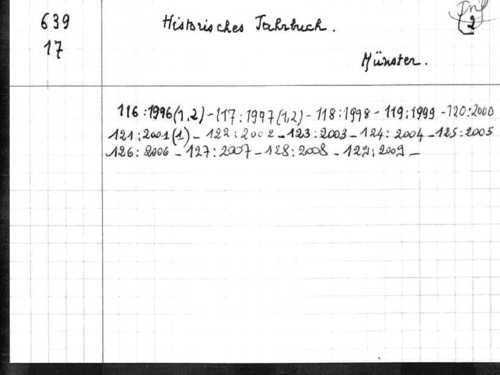 639
17
Historisches Jahrbuch.
Münster.
2
116:1996(1.2)-117:1997(1,2)-118:1998-119:1999-120:2000
121:2001(1)-122:2002-123:2003-124:2004-125:2005
126:2006-127:2007-128:2008-129:2009-